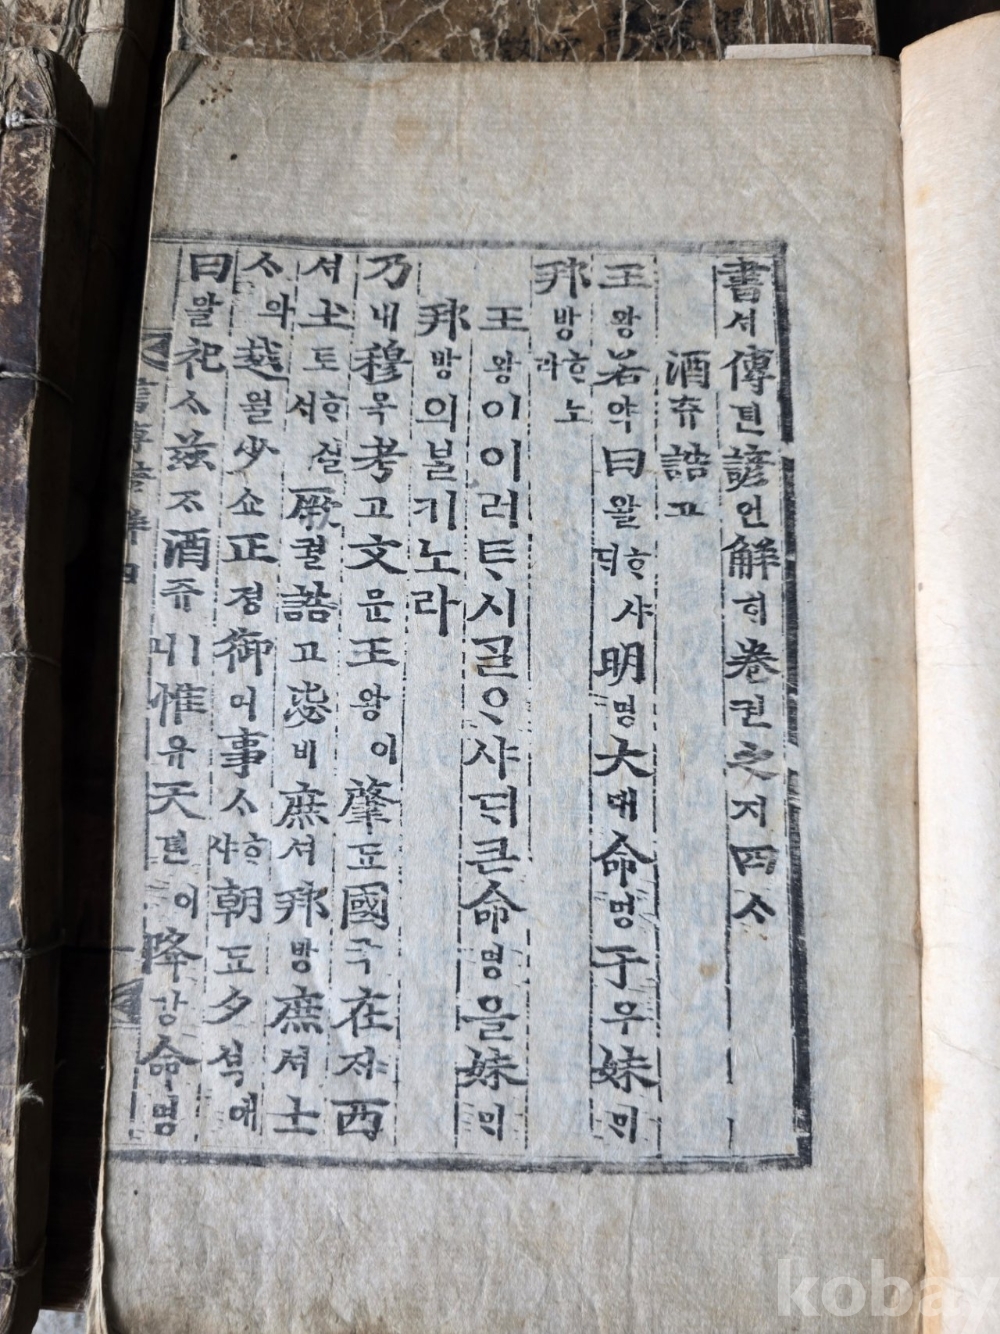 書셔傳뎐諺언解ᄒᆡ卷권之지四ᄉᆞ
酒쥬誥고
王왕若약曰왈ᄒᆞ샤ᄃᆡ明명大대命명于우妹ᄆᆡ
邦방ᄒᆞ노라
王왕이이러ᄐᆞ시ᄀᆞᆯᄋᆞ샤ᄃᆡ큰命명을妹ᄆᆡ
邦방의ᄇᆞᆯ기노라
乃내穆목考고文문王왕이肇됴國국在ᄌᆡ西
셔土토ᄒᆞ실ᄉᆡ厥궐誥고毖비庶셔邦방庶셔士
ᄉᆞ와越월少쇼正졍御어事ᄉᆞᄒᆞ샤朝됴夕셕에
曰왈祀ᄉᆞ玆ᄌᆞ酒쥬ㅣ니惟유天텬이降강命명
書傳諺解 四
kobay